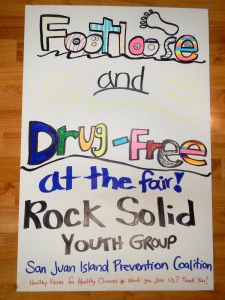 Footloose
and
Drug-Free
at the fair!
Rock Solid
Youth Group
San Juan Island Prevention Coalition
Healthy Voices for Healthy Choices Won't you Join Us? Thank You!